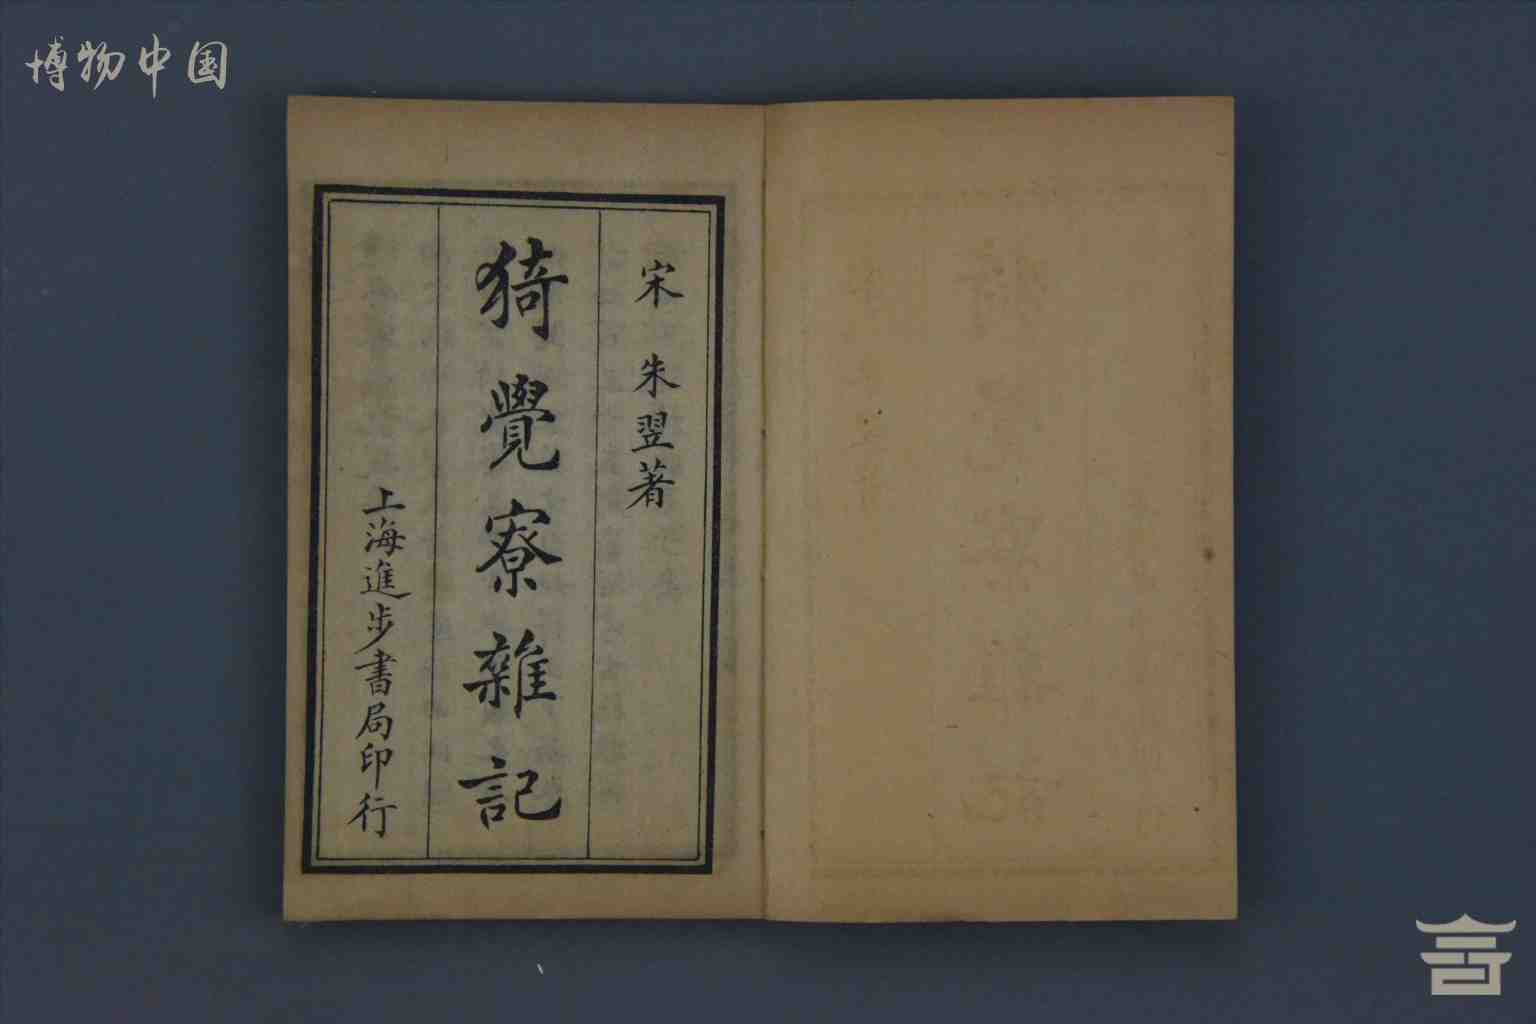 博物中国
宋 朱翌著
猗覺寮雜記
上海進步書局印行